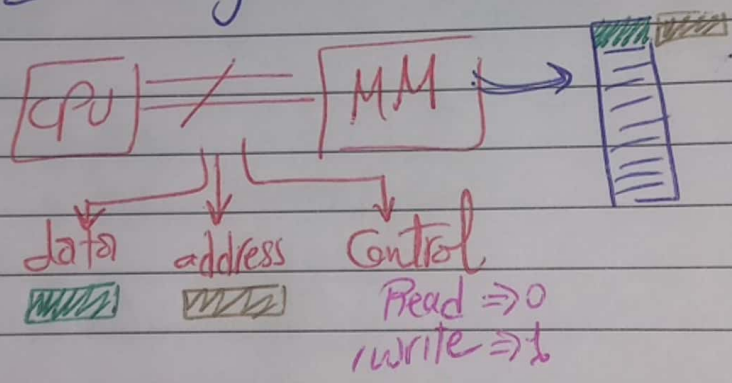 CPU MM
data address Control
Read => 0
write => 1